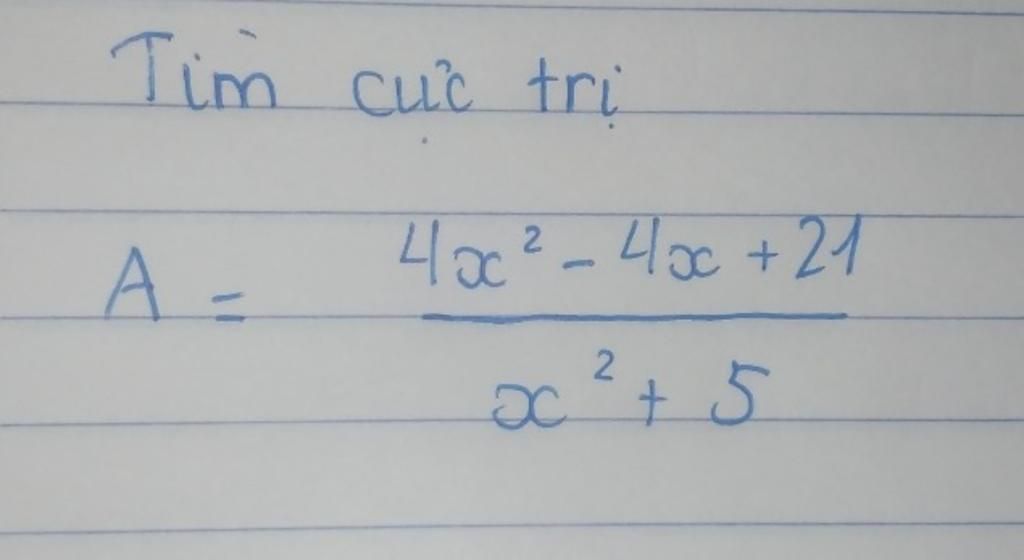 Tìm cực trị
A = \frac{4x^2 - 4x + 21}{x^2 + 5}